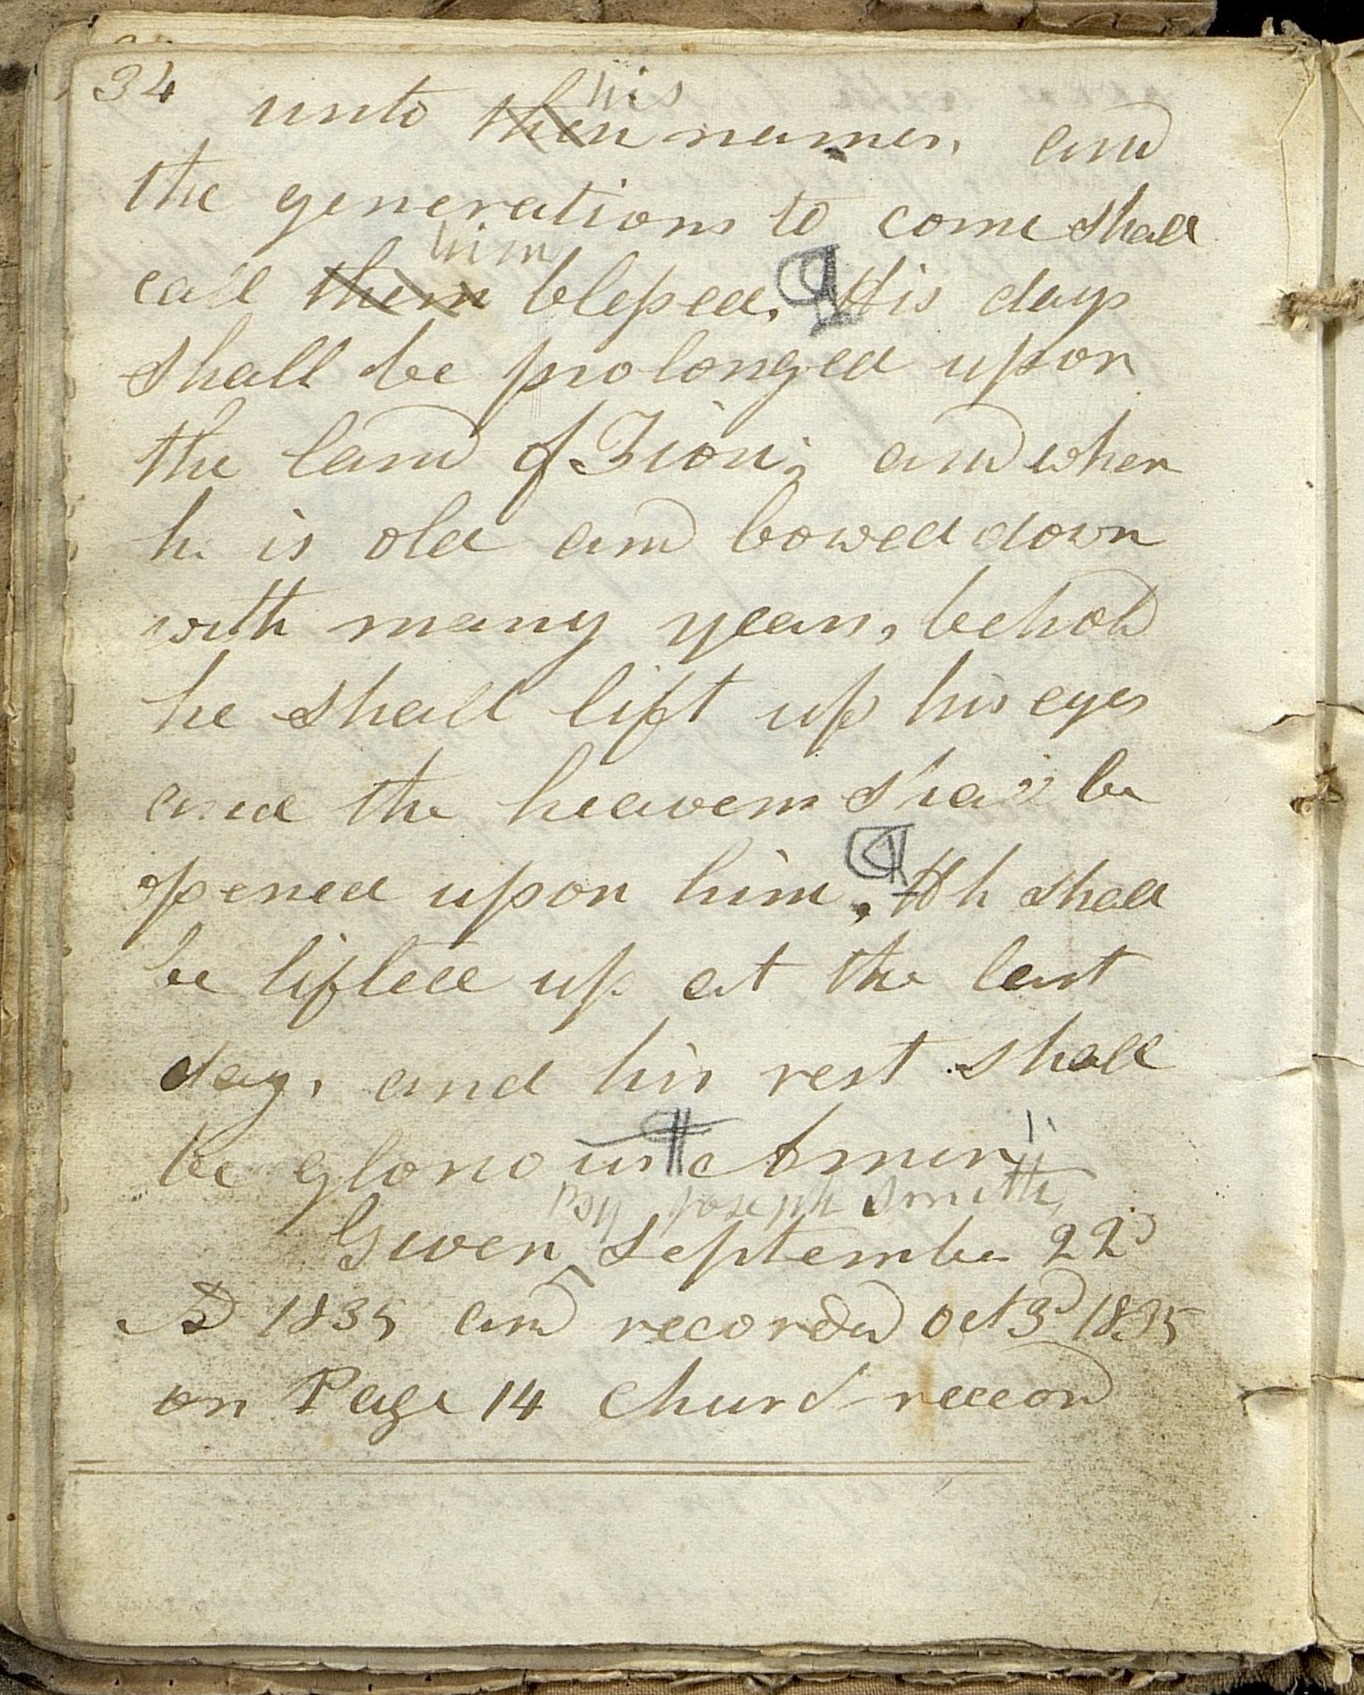 34
unto ~~their~~ his names, and
the generations to come shall
call ~~them~~ him blessed. ¶ His days
shall be prolonged upon
the land of Zion; and when
he is old and bowed down
with many years, behold
he shall lift up his eyes
and the heavens shall be
opened upon him, ¶ He shall
be lifted up at the last
day, and his rest shall
be glorious ¶ Amen"
by Joseph Smith,
Given ^ September 22d
AD 1835 and recorded Oct 3d 1835
on Page 14 Church record